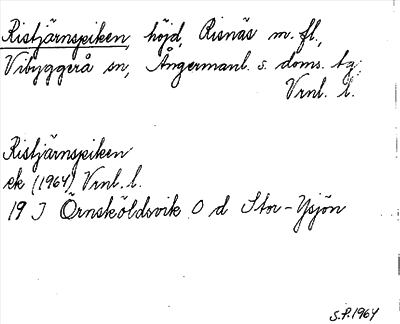 Ristjärnspiken, höjd, Risnäs m. fl.,
Vibyggerå sn, Ångermanl. s. doms. tg
Vrnl. l.
Ristjärnspiken
ek (1964) Vrnl. l.
19 J Örnsköldsvik O d Stor-Ysjön
S.P. 1964